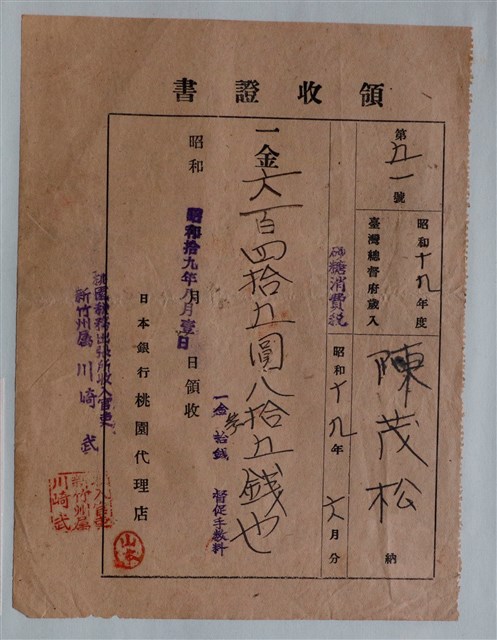 領收證書
第五一號
昭和十九年度
臺灣總督府歲入
陳茂松 納
砂糖消費稅
昭和十九年 六月分
一金六百四拾五圓八拾五錢也
一金 拾錢 督促手數料
昭和 年 月 日領收
昭和拾九年 月壹日
日本銀行桃園代理店
桃園稅務出張所收入官吏
新竹州屬 川崎 武
收入官吏
新竹州屬
川崎武